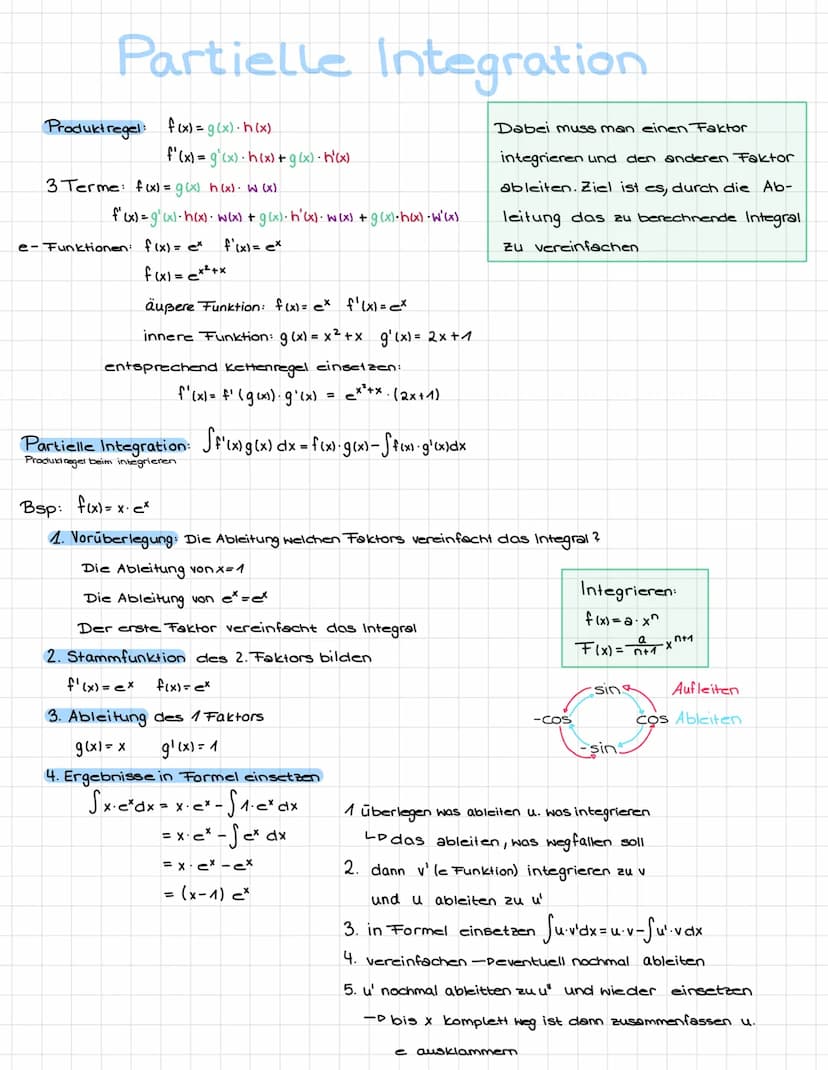 Partielle Integration
Produktregel: f(x) = g(x) · h(x)
f'(x) = g'(x) · h(x) + g(x) · h'(x)
3 Terme: f(x) = g(x) h(x) · w(x)
f'(x) = g'(x) · h(x) · w(x) + g(x) · h'(x) · w(x) + g(x) · h(x) · w'(x)
e- Funktionen: f(x) = eˣ f'(x) = eˣ
f(x) = e^(x²+x)
äußere Funktion: f(x) = eˣ f'(x) = eˣ
innere Funktion: g(x) = x² + x g'(x) = 2x + 1
entsprechend Kettenregel einsetzen:
f'(x) = f'(g(x)) · g'(x) = e^(x²+x) · (2x+1)
Dabei muss man einen Faktor
integrieren und den anderen Faktor
ableiten. Ziel ist es, durch die Ab-
leitung das zu berechnende Integral
zu vereinfachen
Partielle Integration: ∫f'(x) g(x) dx = f(x) · g(x) - ∫f(x) · g'(x) dx
Produktregel beim integrieren
Bsp: f(x) = x · eˣ
1. Vorüberlegung: Die Ableitung welchen Faktors vereinfacht das Integral?
Die Ableitung von x = 1
Die Ableitung von eˣ = eˣ
Der erste Faktor vereinfacht das Integral
2. Stammfunktion des 2. Faktors bilden
f'(x) = eˣ f(x) = eˣ
3. Ableitung des 1 Faktors
g(x) = x g'(x) = 1
4. Ergebnisse in Formel einsetzen
∫x · eˣ dx = x · eˣ - ∫1 · eˣ dx
= x · eˣ - ∫eˣ dx
= x · eˣ - eˣ
= (x-1) eˣ
Integrieren:
f(x) = a · xⁿ
F(x) = a/(n+1) x^(n+1)
sin Aufleiten
-cos cos Ableiten
-sin
1 überlegen was ableiten u. was integrieren
↳ das ableiten, was wegfallen soll
2. dann v' (e Funktion) integrieren zu v
und u ableiten zu u'
3. in Formel einsetzen ∫u · v' dx = u · v - ∫u' · v dx
4. vereinfachen → eventuell nochmal ableiten
5. u' nochmal ableitten zu u" und wieder einsetzen
→ bis x komplett weg ist dann zusammenfassen u.
e ausklammern